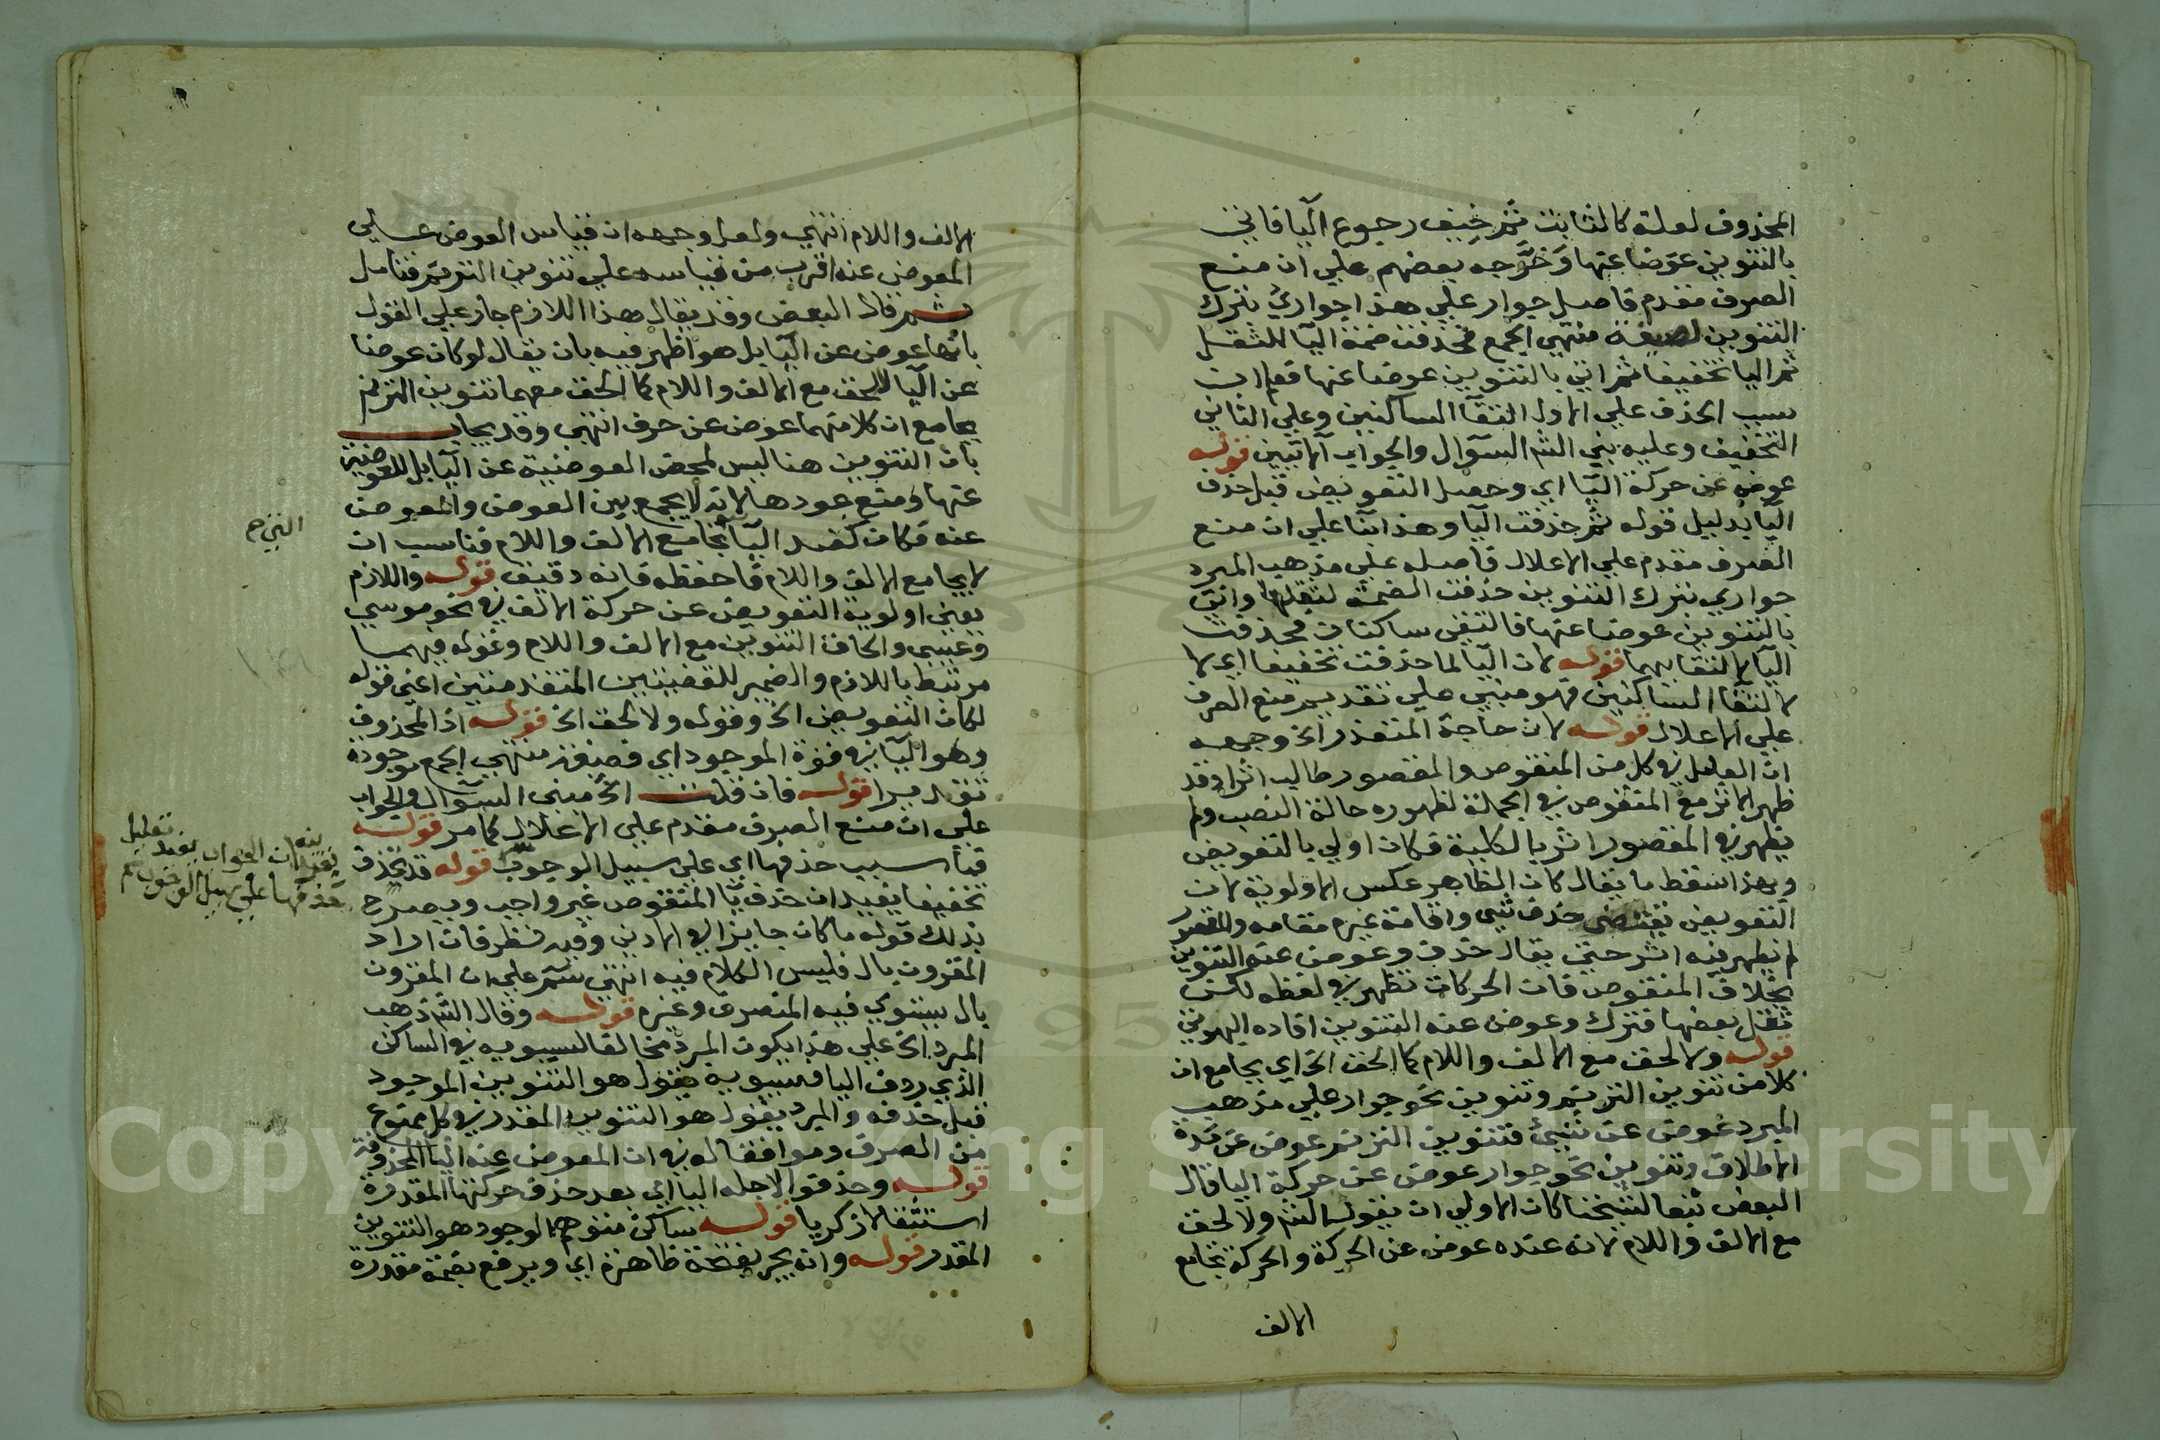 المحذوف لعلة كالثابت ثم خيف رجوع اليا فاتي
بالتنوين عوضا عنها وخرجه بعضهم علي ان منع
الصرف مقدم فاصل جوار علي هذا جواري بترك
التنوين لصيغة منتهي الجمع فحذفت ضمة اليا للثقل
ثم اليا تخفيفا ثم اتي بالتنوين عوضا عنها فعلم ان
سبب الحذف علي الاول التقآ الساكنين وعلي الثاني
التخفيف وعليه بني الش السؤال والجواب الاتيين قوله
عوض عن حركة اليا اي وحصل التعويض قبل حذف
اليا بدليل قوله ثم حذفت اليا وهذا بنآ علي ان منع
الصرف مقدم علي الاعلال فاصله علي مذهب المبرد
جواري بترك التنوين حذفت الضمة لثقلها واتي
بالتنوين عوضا عنها فالتقي ساكنان فحذفت
اليا لالتقايهما قوله لان اليا لما حذفت تخفيفا اي لا
لالتقآ الساكنين فهو مبني علي تقديم منع الصرف
علي الاعلال قوله لان حاجة المتعذر الخ وجهه
ان العامل في كل من المنقوص والمقصور طالب اثرا وقد
ظهر الاثر مع المنقوص في الجملة لظهوره حالة النصب ولم
يظهر في المقصور اثر بالكلية فكان اولي بالتعويض
وبهذا سقط ما يقال كان الظاهر عكس الاولوية لان
التعويض يقتضي حذف شي واقامة غيره مقامه والمقصور
لم يظهر فيه اثر حتي يقال حذف وعوض عنه التنوين
بخلاف المنقوص فان الحركات تظهر في لفظه لكن
ثقل بعضها فترك وعوض عنه التنوين افاده البهوتي
قوله ولالحق مع الالف واللام كما الحق الخ اي بجامع ان
كلا من تنوين الترنم وتنوين نحو جوار علي مذهب
المبرد عوض عن شيئ فتنوين الترنم عوض عن مدة
الاطلاق وتنوين نحو جوار عوض عن حركة اليا قال
البعض تبعا لشيخنا كان الاولي ان يقول الش ولالحق
مع الالف واللام لانه عنده عوض عن الحركة والحركة تجامع
الالف
الالف واللام انتهي ولعل وجهه ان قياس العوض علي
المعوض عنه اقرب من قياسه علي تنوين الترنم فتامل
ثم قال البعض وقد يقال هذا اللازم جار علي القول
بانها عوض عن اليا بل هو اظهر فيه بان يقال لو كان عوضا
عن اليا لالحق مع الالف واللام كما الحق معهما تنوين الترنم
بجامع ان كلا منهما عوض عن حرف انتهي وقد يجاب
بان التنوين هنا ليس لمحض العوضية عن اليا بل للعوضية
عنها ومنع عودها لانه لا يجمع بين العوض والمعوض
عنه فكان كضد اليا بجامع الالف واللام فناسب ان
لا يجامع الالف واللام فاحفظه فانه دقيق قوله واللازم
يعني اولوية التعويض عن حركة الالف في نحو موسي
وعيسي والحاق التنوين مع الالف واللام وقوله فيهما
مرتبط باللازم والضمير للقضيتين المتقدمتين اعني قوله
لكان التعويض الخ وقوله ولالحق الخ قوله اذ المحذوف
وهو اليا في قوة الموجود اي فصيغة منتهي الجمع موجودة
تقديرا قوله فان قلت الخ مبني السؤال والجواب
علي ان منع الصرف مقدم علي الاعلال كما مر قوله
فما سبب حذفها اي علي سبيل الوجوب قوله قد تحذف
تخفيفا يفيد ان حذف يا المنقوص غير واجب ويصرح
بذلك قوله ما كان جايزا في الادني وفيه نظر فان اراد
المقرون بال فليس الكلام فيه انتهي سم علي ان المقرون
بال يستوي فيه المنصرف وغيره قوله وقال الش ذهب
المبرد الخ علي هذا يكون المبرد مخالفا لسيبويه في الساكن
الذي ردف اليا فسيبويه يقول هو التنوين الموجود
قبل حذفه والمبرد يقول هو التنوين المقدر في كل ممنوع
من الصرف وموافقا له في ان المعوض عنه اليا المحذوفة
قوله وحذفوا لاجله اليا اي بعد حذف حركتها المقدرة
استثقالا زكريا قوله ساكن متوهم الوجود هو التنوين
المقدر قوله وانه يجر بفتحة ظاهرة اي ويرفع بضمة مقدرة